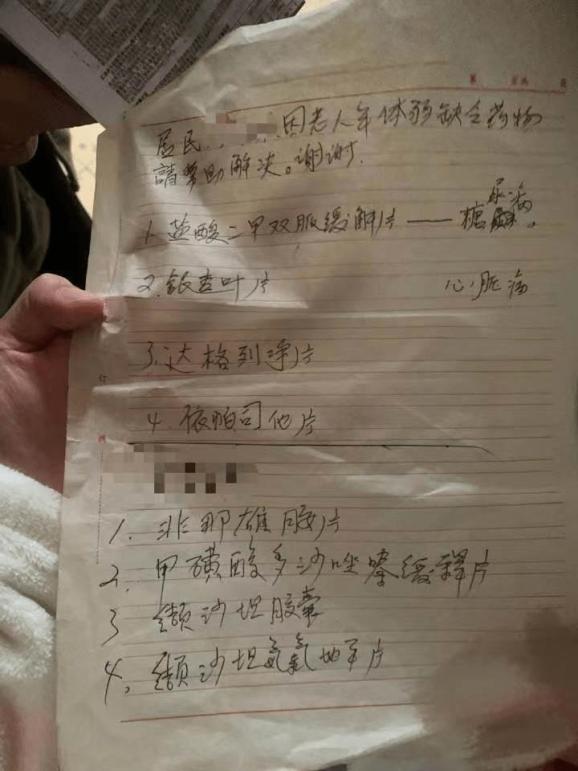 居民 因老人年体弱缺乏药物
請帮助解决。谢谢!
1. 盐酸二甲双胍缓解片——糖尿病。
2. 银杏叶片 心脏病
3. 达格列净片
4. 依帕司他片
1. 非那雄胺片
2. 甲磺酸多沙唑嗪缓释片
3 缬沙坦胶囊
4. 缬沙坦氨氯地平片